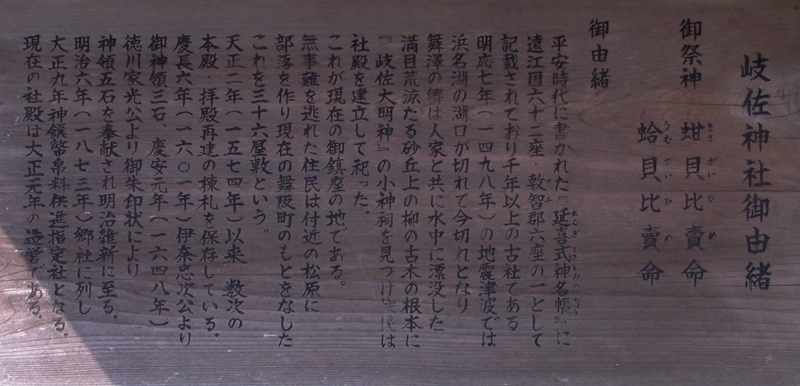 岐佐神社御由緒
御祭神 蚶貝比賣命
きさがいひめ
蛤貝比賣命
うむがいひめ
御由緒
平安時代に書かれた『延喜式神名帳』に
遠江国六十二座・敷智郡六座の一として
記載されており千年以上の古社である
明応七年(一四九八年)の地震津波では
浜名湖の湖口が切れて今切れとなり
舞澤の郷は人家と共に水中に漂没した
満目荒涼たる砂丘上の柳の古木の根本に
『岐佐大明神』の小神祠を見つけ住民は
社殿を建立して祀った。
これが現在の御鎮座の地である。
無事難を逃れた住民は付近の松原に
部落を作り現在の舞阪町のもとをなした
これを三十六屋敷という。
天正二年(一五七四年)以来 数次の
本殿・拝殿再建の棟札を保存している。
慶長六年(一六〇一年)伊奈忠次公より
御神領三石 慶安元年(一六四八年)
徳川家光公より御朱印状により
神領五石を奉献され明治維新に至る。
明治六年(一八七三年)郷社に列し
大正九年神饌幣帛料供進指定社となる。
現在の社殿は大正元年の造営である。